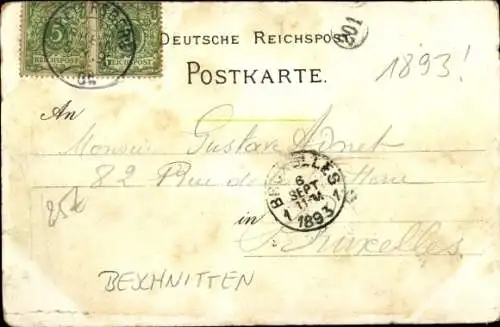 5 5
REICHSPOST REICHSPOST
DEUTSCHE REICHSPOST
201
POSTKARTE.
1893!
An
Monsieur Gustave
82 Rue de
BRUXELLES
6
SEPT
11-M
1893
1 1
in
Bruxelles.
25€
BESCHNITTEN